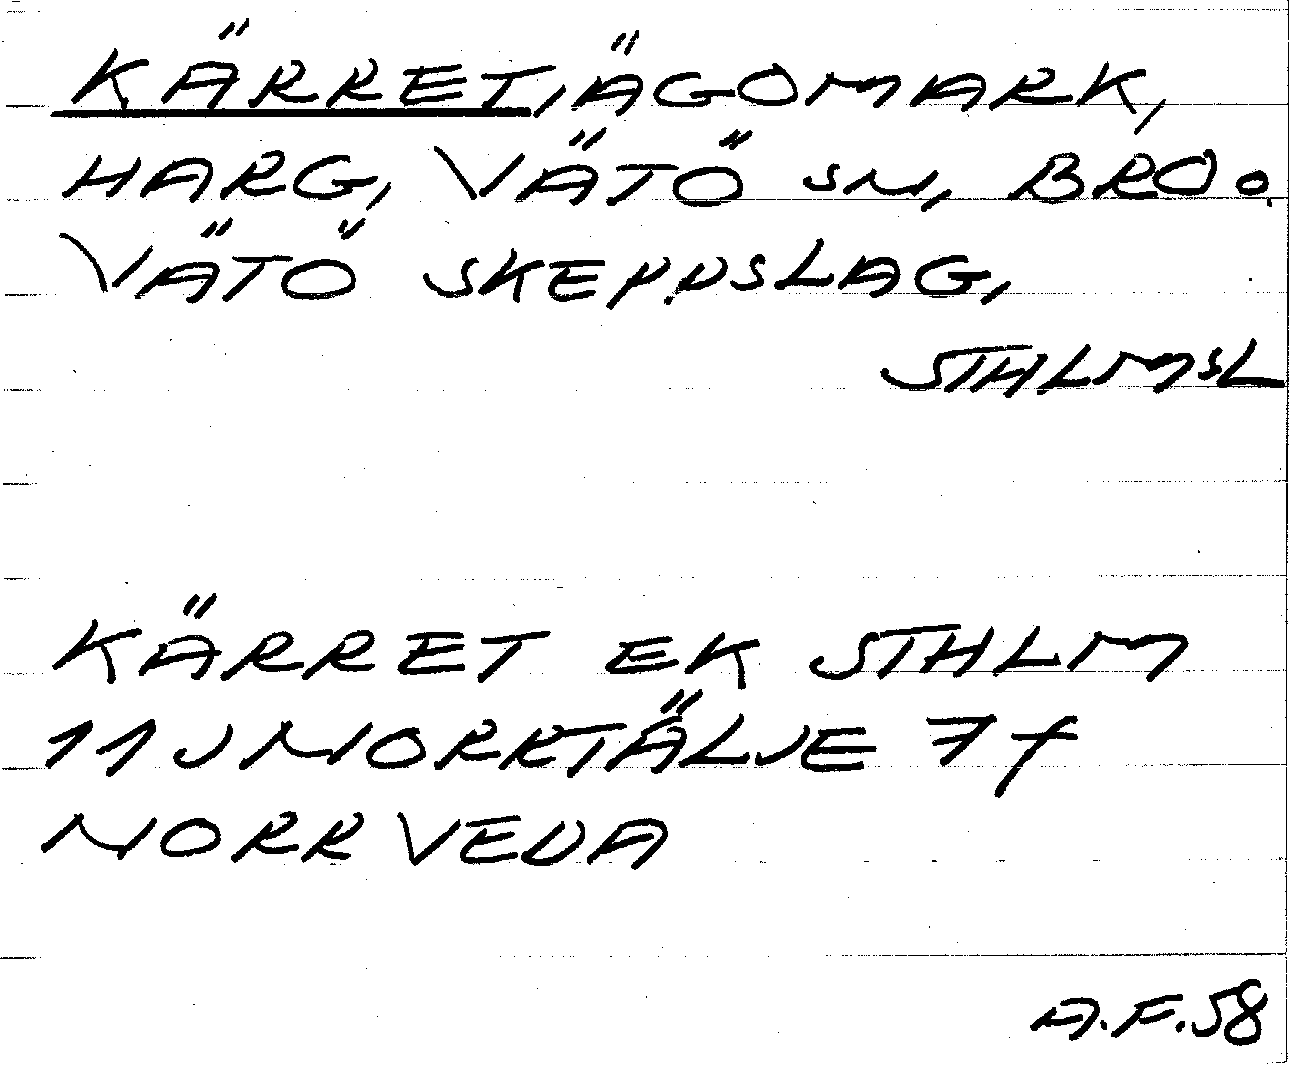 KÄRRET, ÄGOMARK,
HARG, VÄTÖ SN, BRO O.
VÄTÖ SKEPPSLAG,
STHLMSL
KÄRRET EK STHLM
11J NORRTÄLJE 7f
NORRVEDA
A.F.58